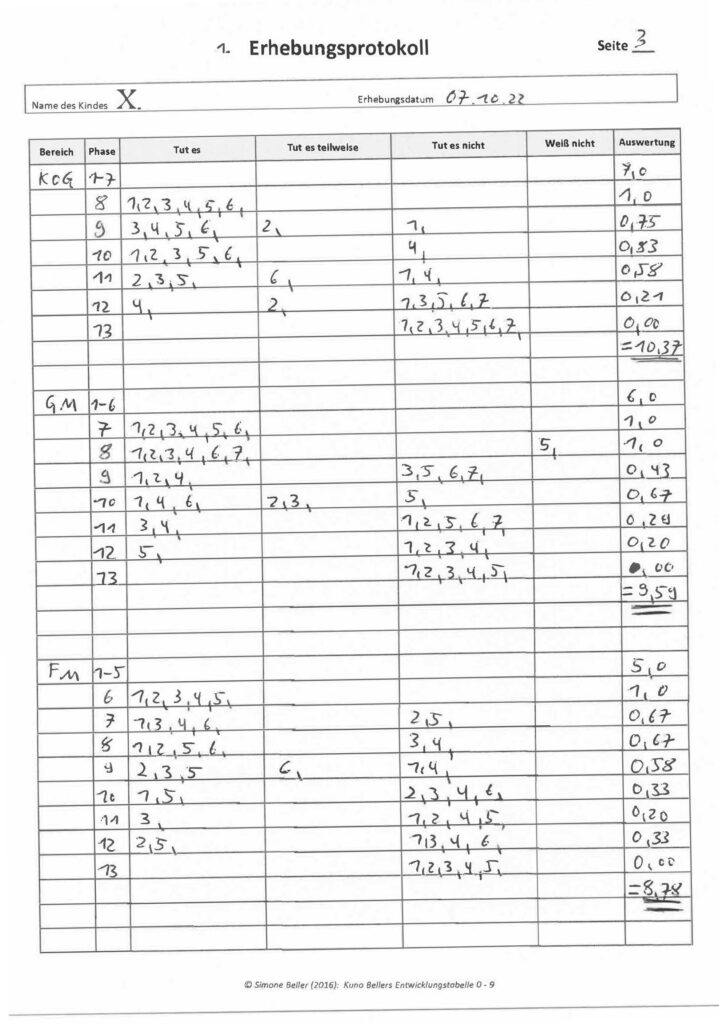 1. Erhebungsprotokoll Seite 3
Name des Kindes X. Erhebungsdatum 07.10.22
Bereich Phase Tut es Tut es teilweise Tut es nicht Weiß nicht Auswertung
KoG 1-7 7,0
8 1,2,3,4,5,6, 1,0
9 3,4,5,6, 2, 1, 0,75
10 1,2,3,5,6, 4, 0,83
11 2,3,5, 6, 1,4, 0,58
12 4, 2, 1,3,5,6,7 0,21
13 1,2,3,4,5,6,7, 0,00
=10,37
GM 1-6 6,0
7 1,2,3,4,5,6, 1,0
8 1,2,3,4,6,7, 5, 1,0
9 1,2,4, 3,5,6,7, 0,43
10 1,4,6, 2,3, 5, 0,67
11 3,4, 1,2,5,6,7 0,29
12 5, 1,2,3,4, 0,20
13 1,2,3,4,5, ,00
=9,59
FM 1-5 5,0
6 1,2,3,4,5, 1,0
7 1,3,4,6, 2,5, 0,67
8 1,2,5,6, 3,4, 0,67
9 2,3,5 6, 1,4, 0,58
10 1,5, 2,3,4,6, 0,33
11 3, 1,2,4,5, 0,20
12 2,5, 1,3,4,6, 0,33
13 1,2,3,4,5, 0,00
=8,78
© Simone Beller (2016): Kuno Bellers Entwicklungstabelle 0 - 9